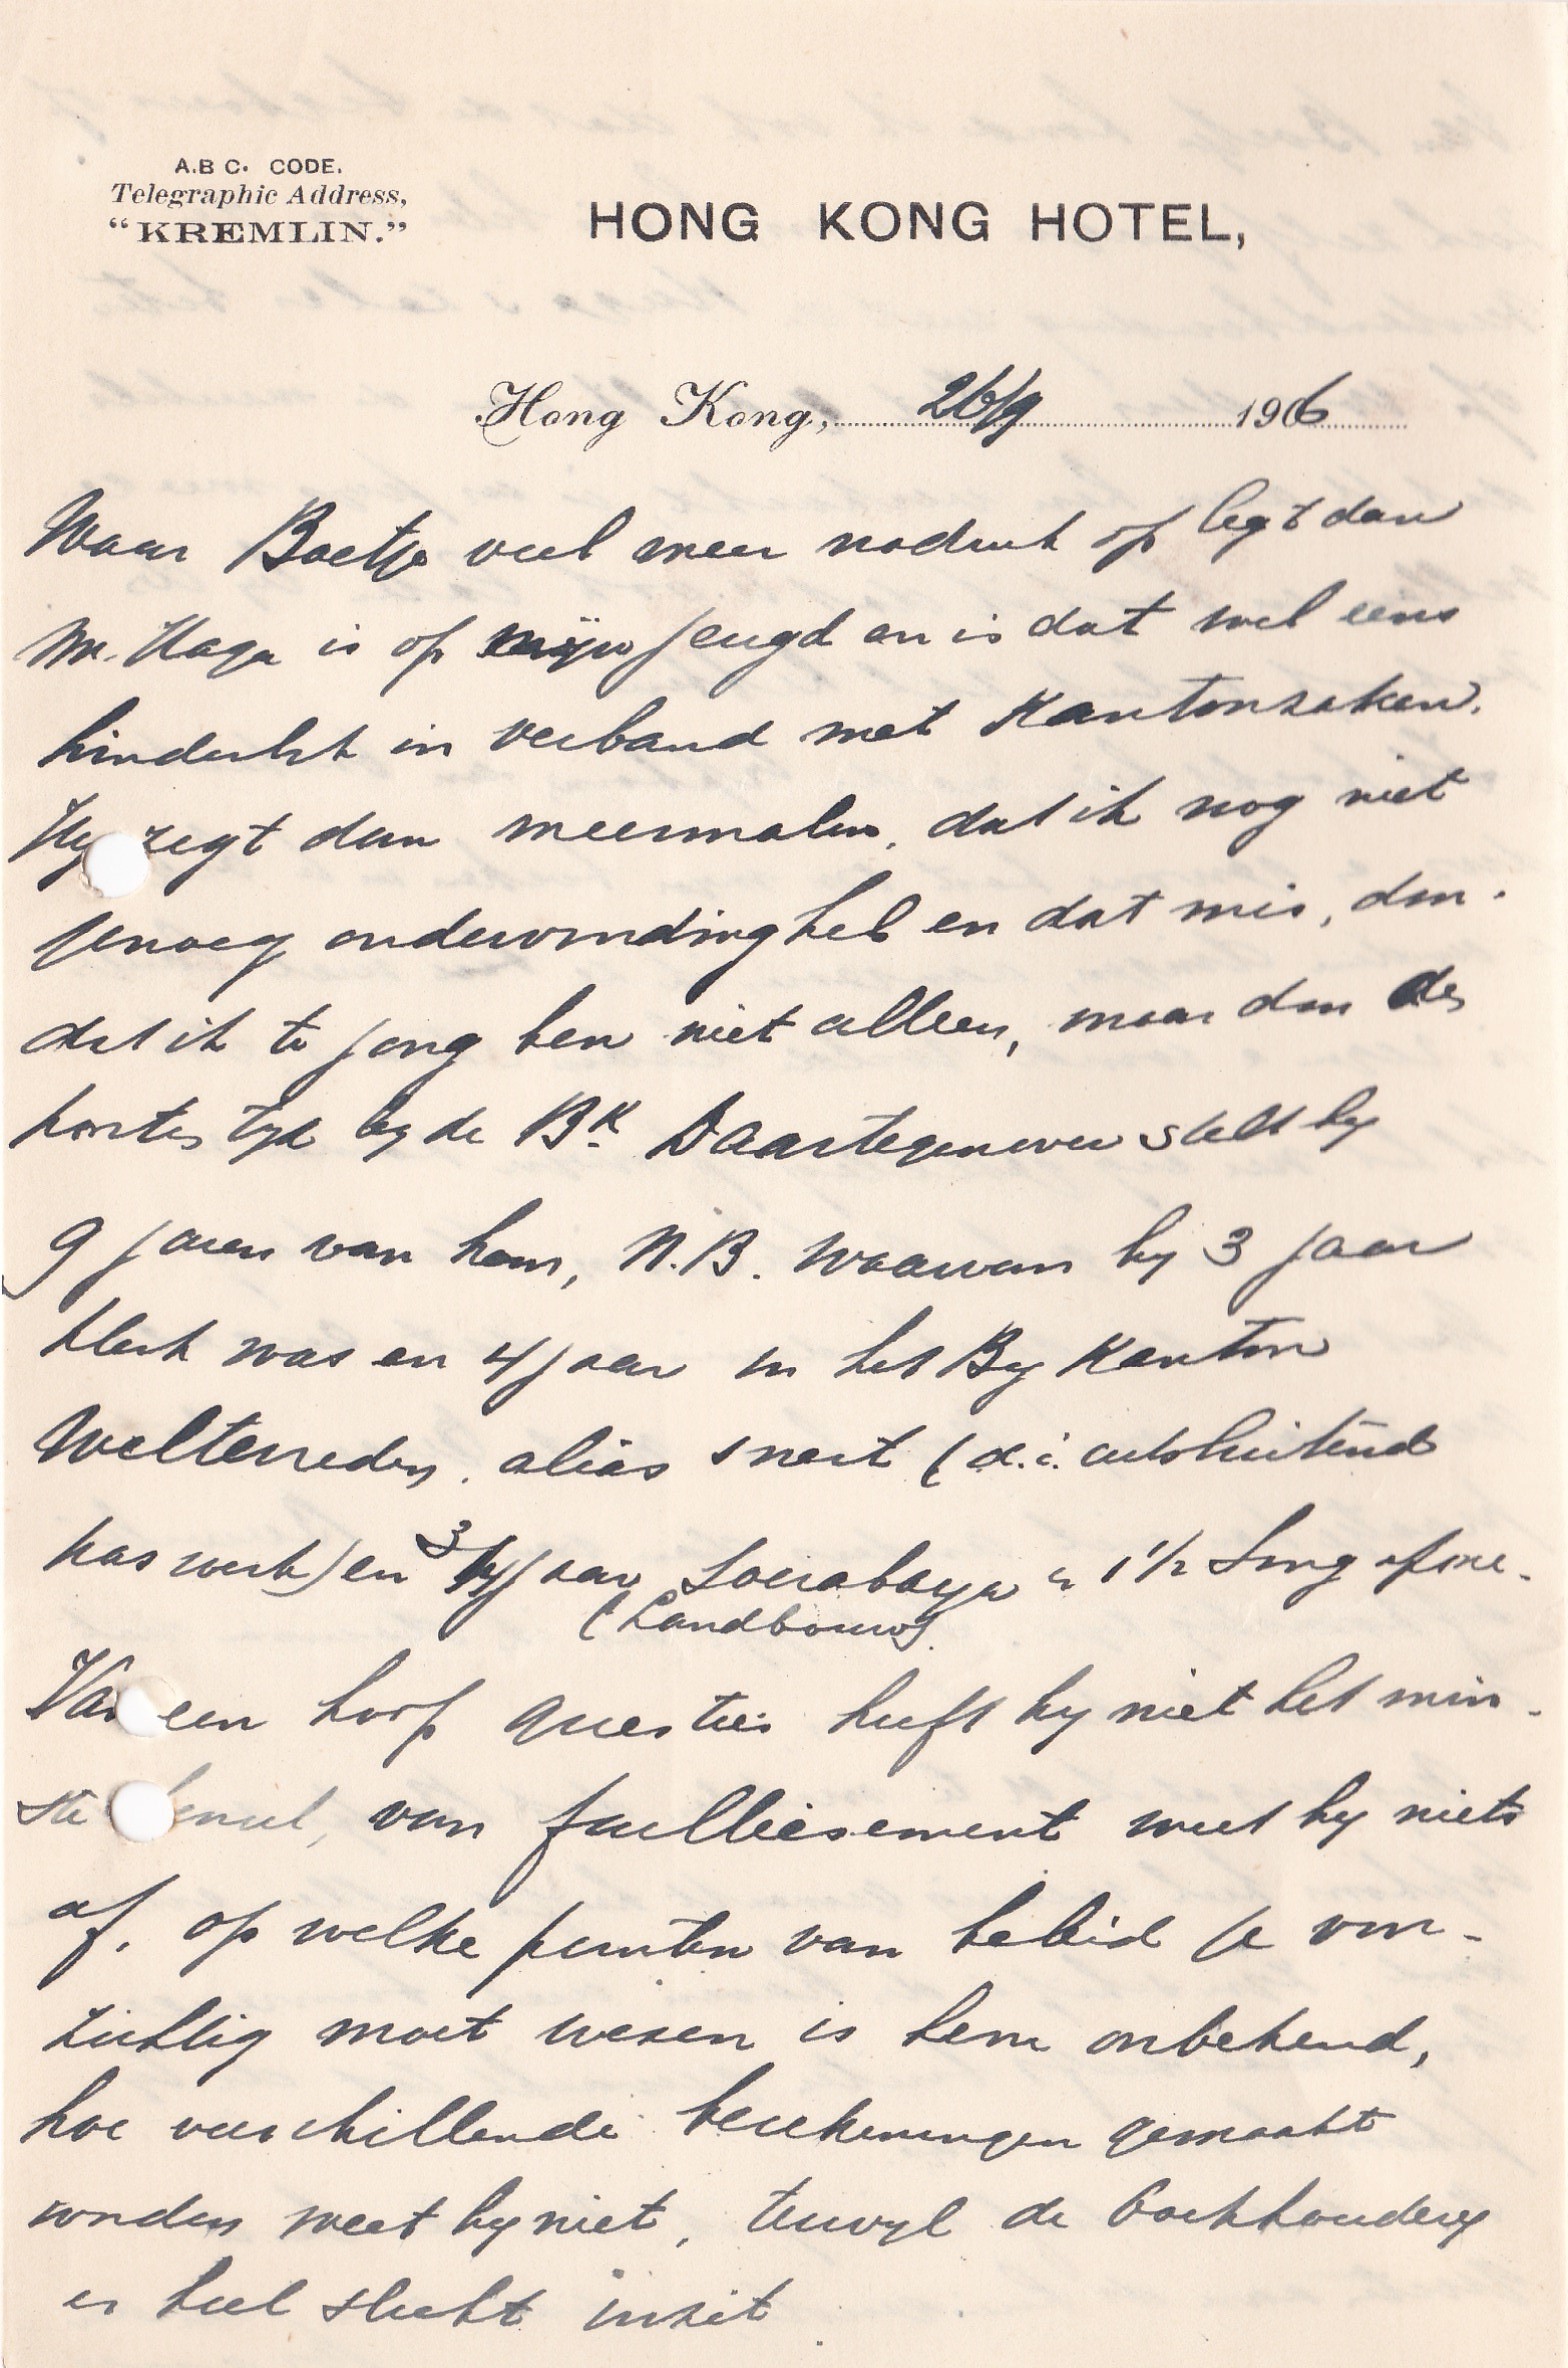 A.B C. CODE.
Telegraphic Address,
"KREMLIN."
HONG KONG HOTEL,
Hong Kong, 26/9 1906
Waar Boetje veel meer nadruk op legt dan
Mr. Haga is op mijn jeugd en is dat wel eens
hinderlijk in verband met Kantoorzaken.
Hy zegt dan meermalen, dat ik nog niet
genoeg ondervinding heb en dat mis, door
dat ik te jong ben niet alleen, maar door de
korte tyd by de Bk. Daartegenover stelt hy
9 jaren van hem, N.B. waarvan hy 3 jaar
klerk was en 4 jaar in het By Kantoor
Weltevreden, alias snert (d.i. uitsluitend
kaswerk) en 3 jaar Soerabaya en 1 1/2 Sing afme.
(Landbouw)
Van een hoop questies heeft hy niet het min-
ste benul, van faillissement weet hy niets
af, op welke punten van beleid je voor-
zichtig moet wezen is hem onbekend,
hoe verschillende berekeningen gemaakt
worden weet hy niet, terwyl de boekhoudery
er heel slecht inzit.